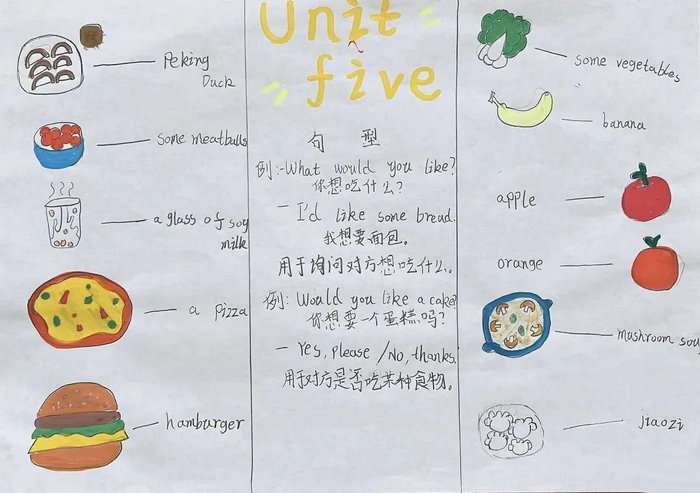 Peking
Duck
some meatballs
a glass of soy
milk
a pizza
hamburger
Unit
five
句 型
例:-What would you like?
你想吃什么?
- I'd like some bread.
我想要面包。
用于询问对方想吃什么。
例: Would you like a cake?
你想要一个蛋糕吗?
- Yes, please /No, thanks.
用于对方是否吃某种食物。
some vegetables
banana
apple
orange
mushroom sou
jiaozi